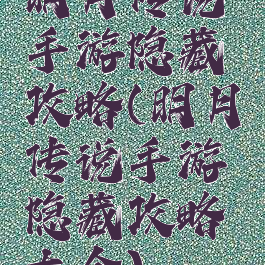 明月传说
手游隐藏
攻略(明月
传说手游
隐藏攻略
大全)